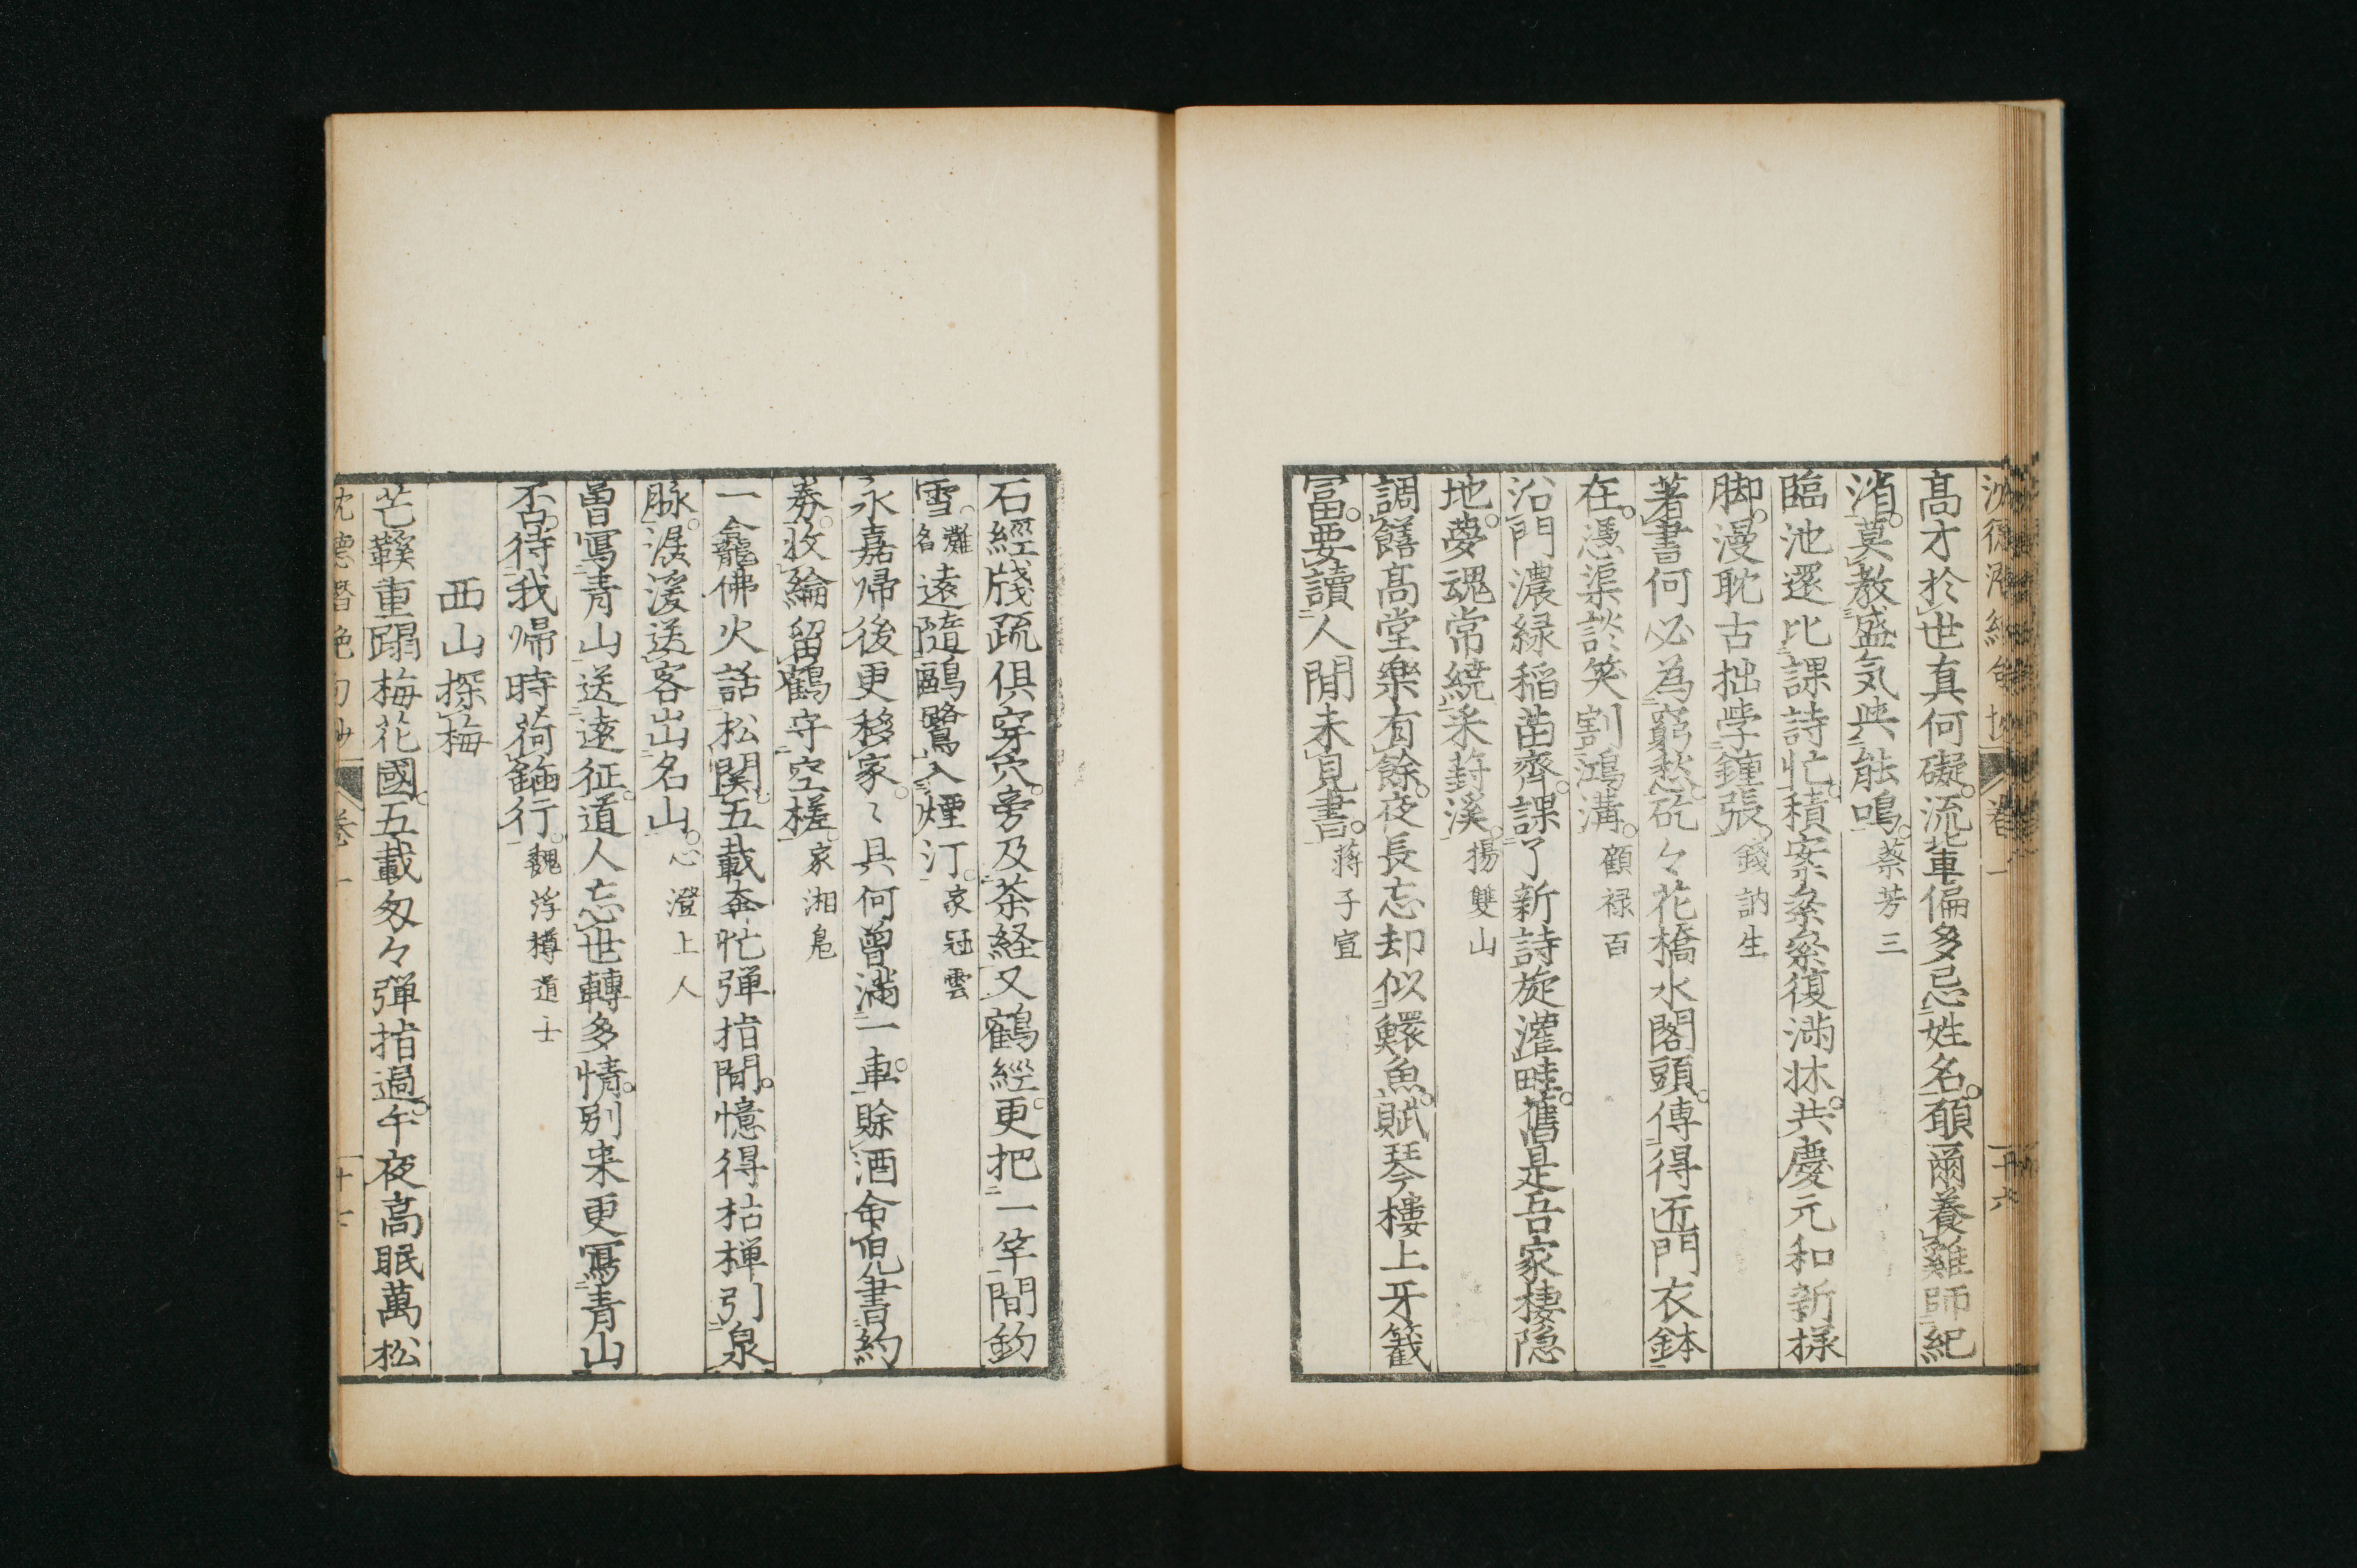 高才於世真何礙流輩偏多忌姓名願爾養雞師紀
渻莫教盛気共能鳴蔡芳三
臨池還比課詩忙積案桑桑復滿牀共慶元和新様
脚漫耽古拙学鍾張錢訥生
著書何必為窮愁矻々花橋水閣頭傳得匠門衣鉢
在憑渠談笑割鴻溝顧禄百
沿門濃緑稲苗齊課了新詩旋灌畦舊是吾家棲隠
地夢魂常繞采葑溪揚雙山
調饍高堂樂有餘夜長忘却似鰥魚賦琴樓上牙籤
富要讀人間未見書蔣子宣
石經牋疏俱穿穴旁及茶経又鶴經更把一竿間釣
雪灘名遠隨鷗鷺入煙汀家冠雲
永嘉帰後更移家〻具何曾滿一車賖酒命児書約
券收綸留鶴守空槎家湘鳬
一龕佛火話松関五載奔忙弾指間憶得枯椫引泉
脉潺湲送客出名山心澄上人
曽寫青山送遠征道人忘世轉多情別来更寫青山
否待我帰時荷鍤行魏浮樽道士
西山探梅
芒鞵重蹋梅花國五載匆々弾指過午夜高眠萬松
沈德潜絶句抄
卷一